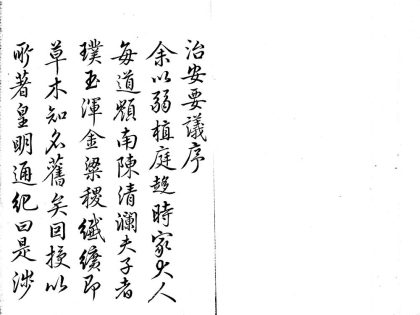 治安要議序
余以弱植庭趍時家大人
每道嶺南陳清瀾夫子者
璞玉渾金粱稷纖纊即
草木知名舊矣回授以
所著皇明通紀曰是涉